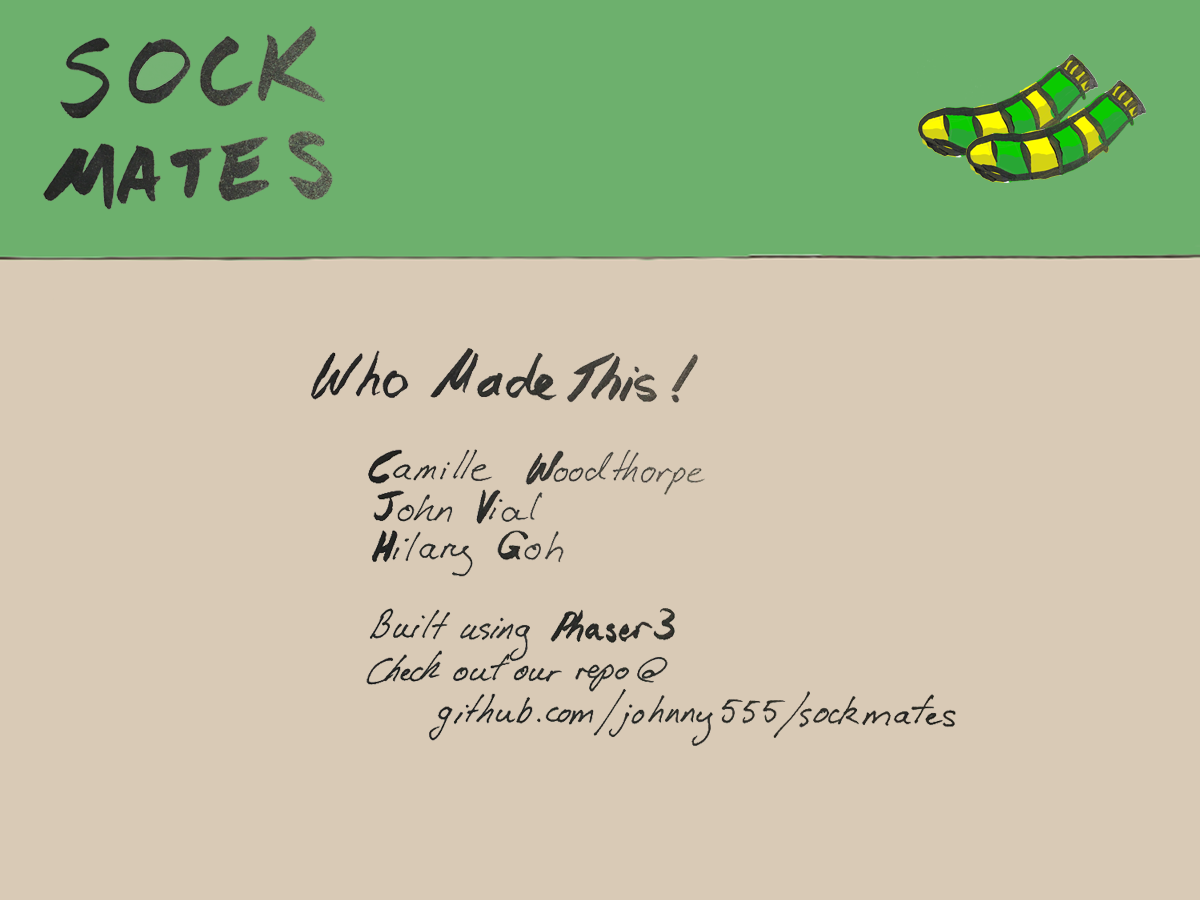 SOCK
MATES
Who Made This!
Camille Woodthorpe
John Vial
Hilary Goh
Built using Phaser3
Check out our repo@
github.com/johnny555/sockmates